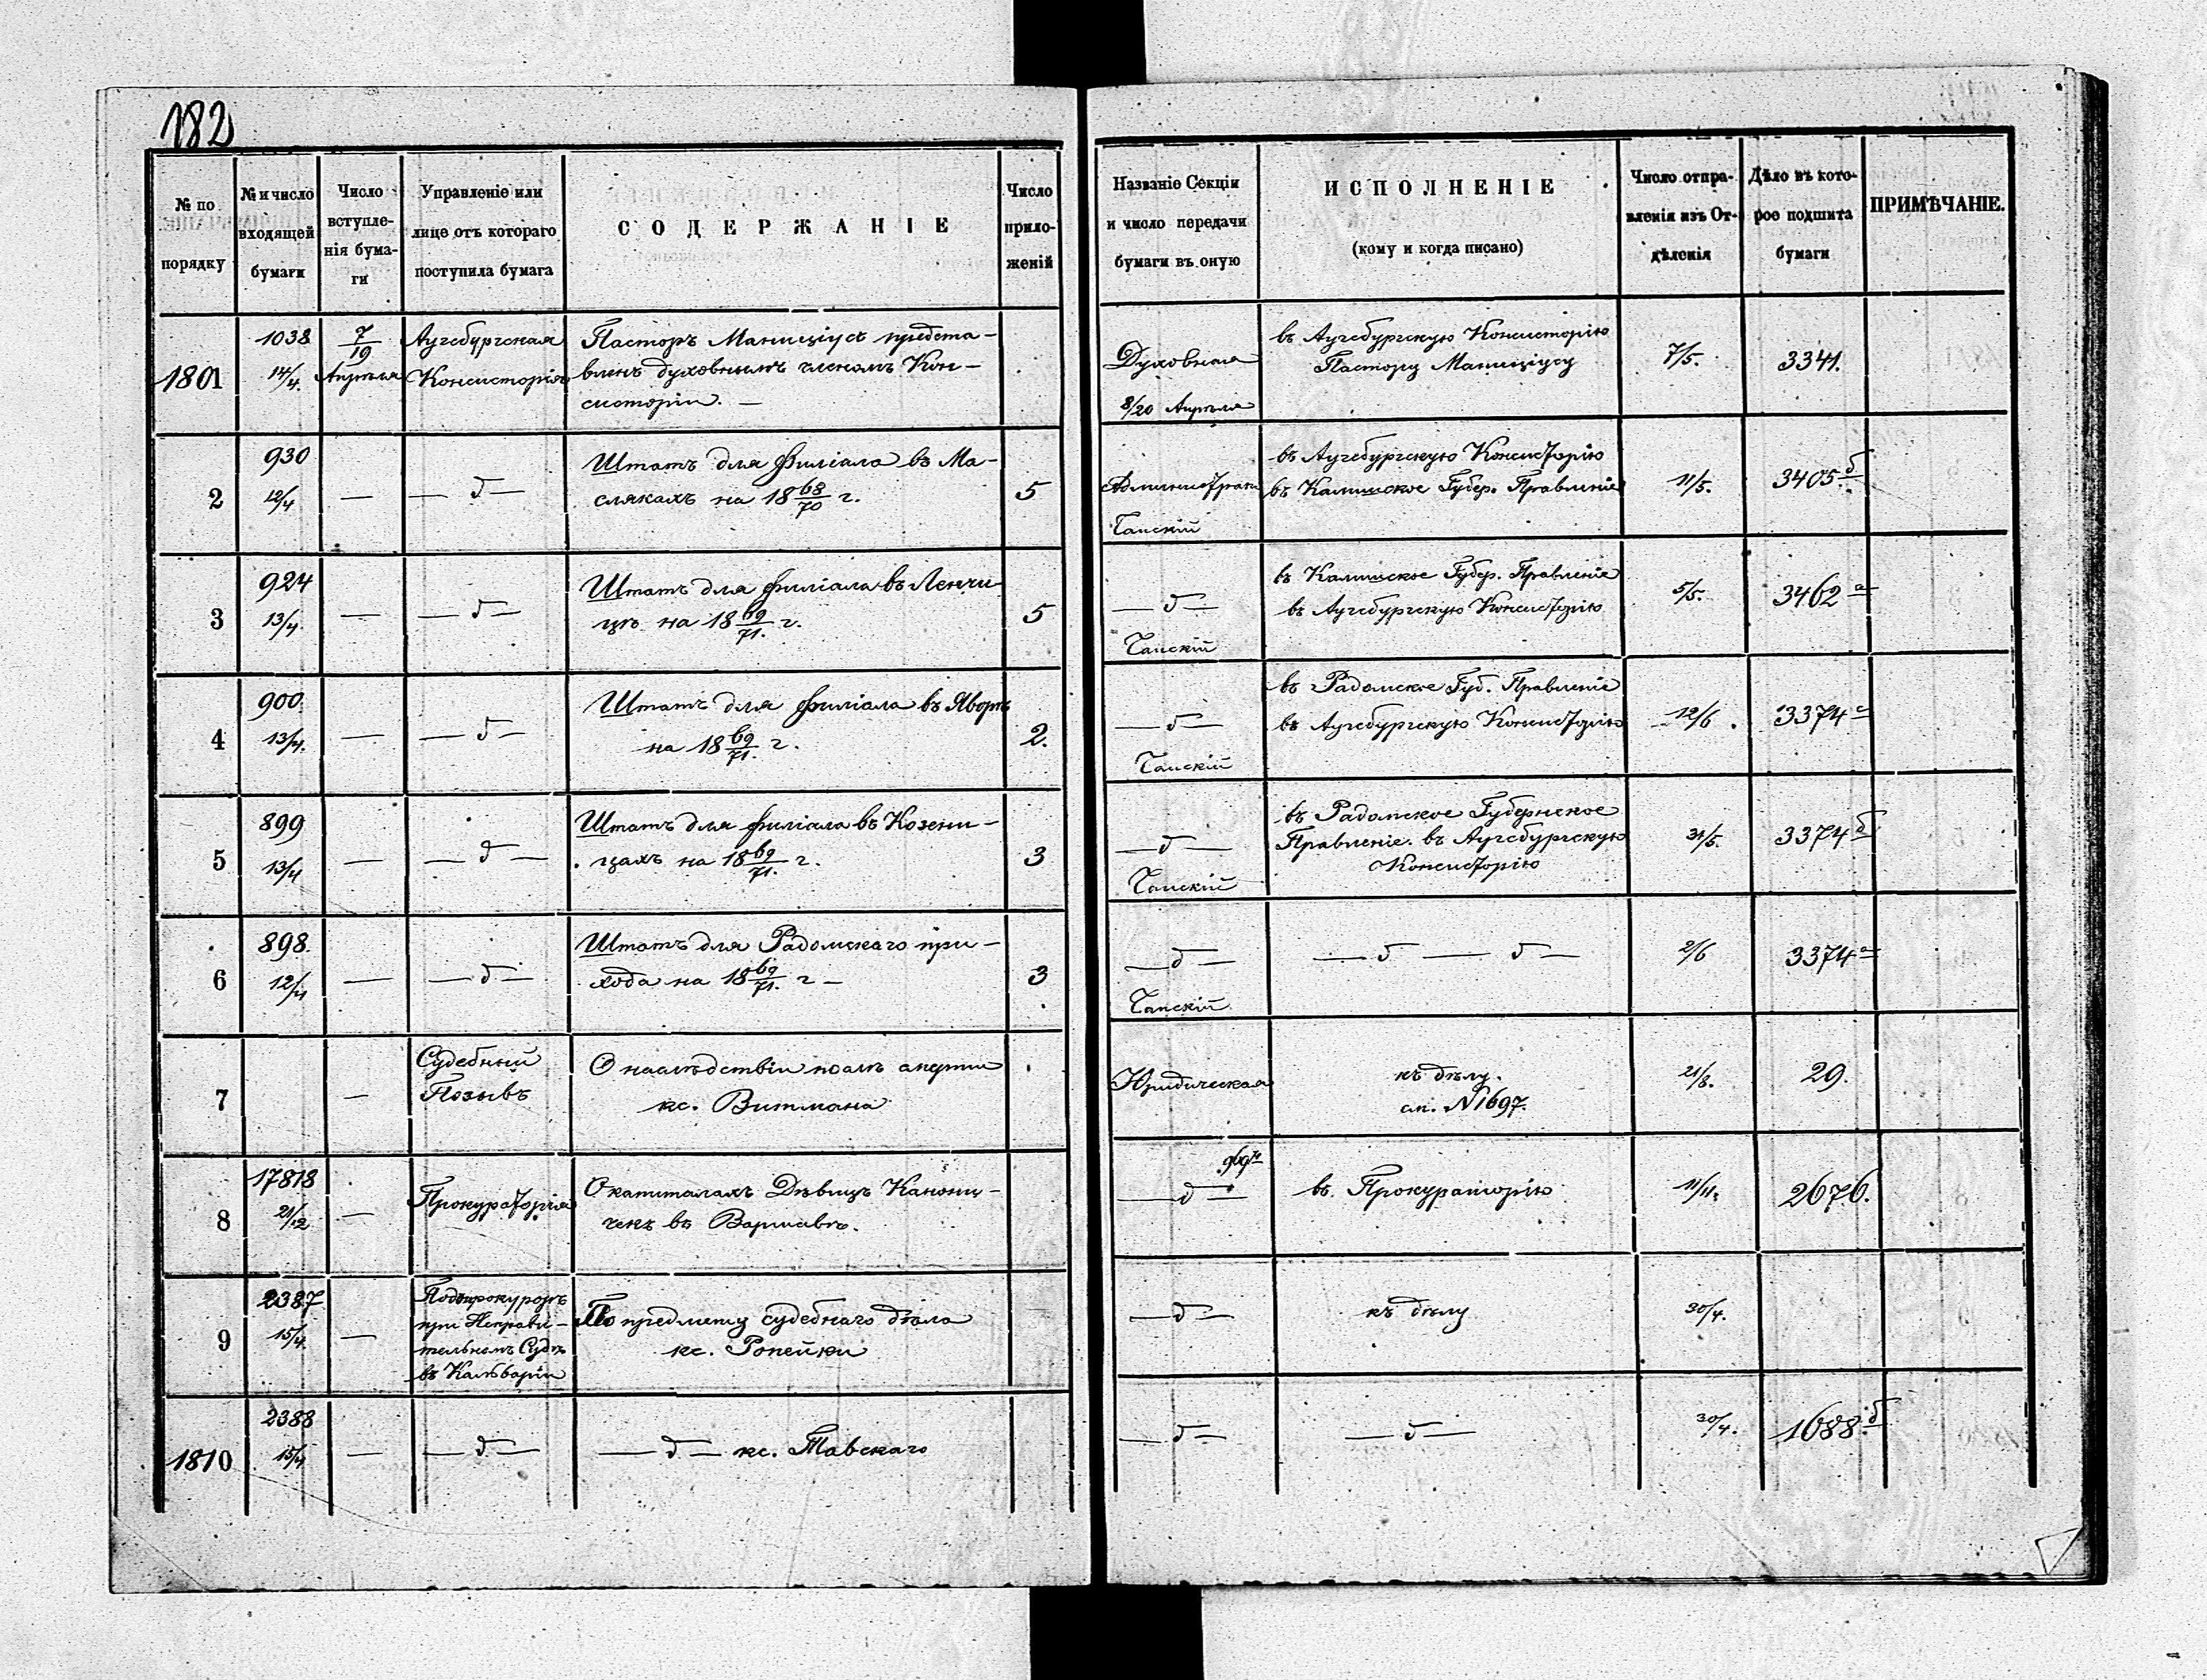 182
№ по порядку
№ и число входящей бумаги
Число вступле-нія бума-ги
Управленіе или лице отъ котораго поступила бумага
СОДЕРЖАНІЕ
Число прило-женій
Названіе Секціи и число передачи бумаги въ оную
ИСПОЛНЕНІЕ
(кому и когда писано)
Число отпра-вленія изъ От-дѣленія
Дѣло въ кото-рое подшита бумаги
ПРИМѢЧАНІЕ.
1801
1038
14/4.
7/19
Апрѣля
Аугсбургская
Консисторія
Пасторъ Маниціусъ предста-
вленъ духовнымъ членомъ Кон-
систоріи. —
Духовная
8/20 Апрѣля
въ Аугсбургскую Консисторію
Пастору Маниціусу
7/5.
3341.
2
930
12/4
—
— д —
Штатъ для филіала въ Ма-
слякахъ на 18 68/70 г.
5
Танскій
въ Аугсбургскую Консисторію
въ Калишское Губер. Правленіе
11/5.
3405 б
3
924
13/4.
—
— д —
Штатъ для филіала въ Ленчи-
цѣ на 18 69/71. г.
5
— д —
Танскій
въ Калишское Губер. Правленіе
въ Аугсбургскую Консисторію
5/5.
3462 а
4
900.
13/4.
—
— д —
Штатъ для филіала въ Яворѣ
на 18 69/71. г.
2.
— д —
Танскій
въ Радомское Губ. Правленіе
въ Аугсбургскую Консисторію
12/6.
3374 с
5
899
13/4
—
— д —
Штатъ для филіала въ Козени-
цахъ на 18 69/71. г.
3
— д —
Танскій
въ Радомское Губернское
Правленіе. въ Аугсбургскую
Консисторію
31/5.
3374 б
6
898.
12/4
—
— д —
Штатъ для Радомскаго при-
хода на 18 69/71. г —
3
— д —
Танскій
— д — — д —
2/6
3374 а
7
—
Судебный
Позывъ
О наслѣдствіи
кс. Витмана
Юридическая
къ дѣлу.
сл. N 1697.
21/8.
29.
8
17818
21/12
—
Прокураторія
О капиталахъ Дѣвицъ Канони-
чекъ въ Варшавѣ.
— д —
въ Прокураторію
11/11.
2676.
9
2387
15/4.
—
Подпрокуроръ
при Исправи-
тельномъ Судѣ
въ Кальваріи
По предмету судебнаго дѣла
кс. Ропейки
— д —
къ дѣлу
30/4.
1810
2388
15/4
—
— д —
— д — кс. Тавскаго
— д —
— д —
30/4.
1688 б